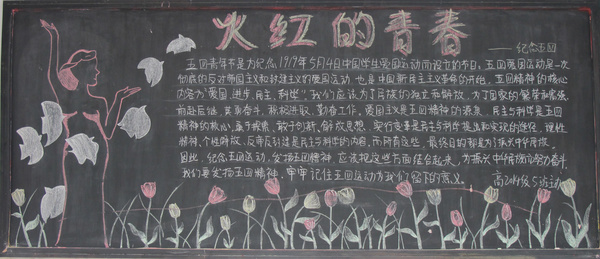 火红的青春
——纪念五四
五四青年节是为纪念1919年5月4日中国学生爱国运动而设立的节日，五四爱国运动是一次
彻底的反对帝国主义和封建主义的爱国运动，也是中国新民主主义革命的开始，五四精神的核心
内容为“爱国、进步、民主、科学”，我们应该为了民族的独立和解放，为了国家的繁荣和富强，
前赴后继，艰奋斗，积极进取，勤奋工作。爱国主义是五四精神的源泉，民主与科学是五四
精神的核心，勇于探索、敢于创新、解放思想、实行变革是民主与科学提出和实现的途径，理性
精神、个性解放、反帝反封建是民主与科学的内容，而所有这些，最终目的都是为了振兴中华民族。
因此，纪念五四运动，发扬五四精神，应该把这些方面结合起来，为振兴中华民族而努力奋斗，
我们要发扬五四精神，牢牢记住五四运动为我们留下的意义。
高